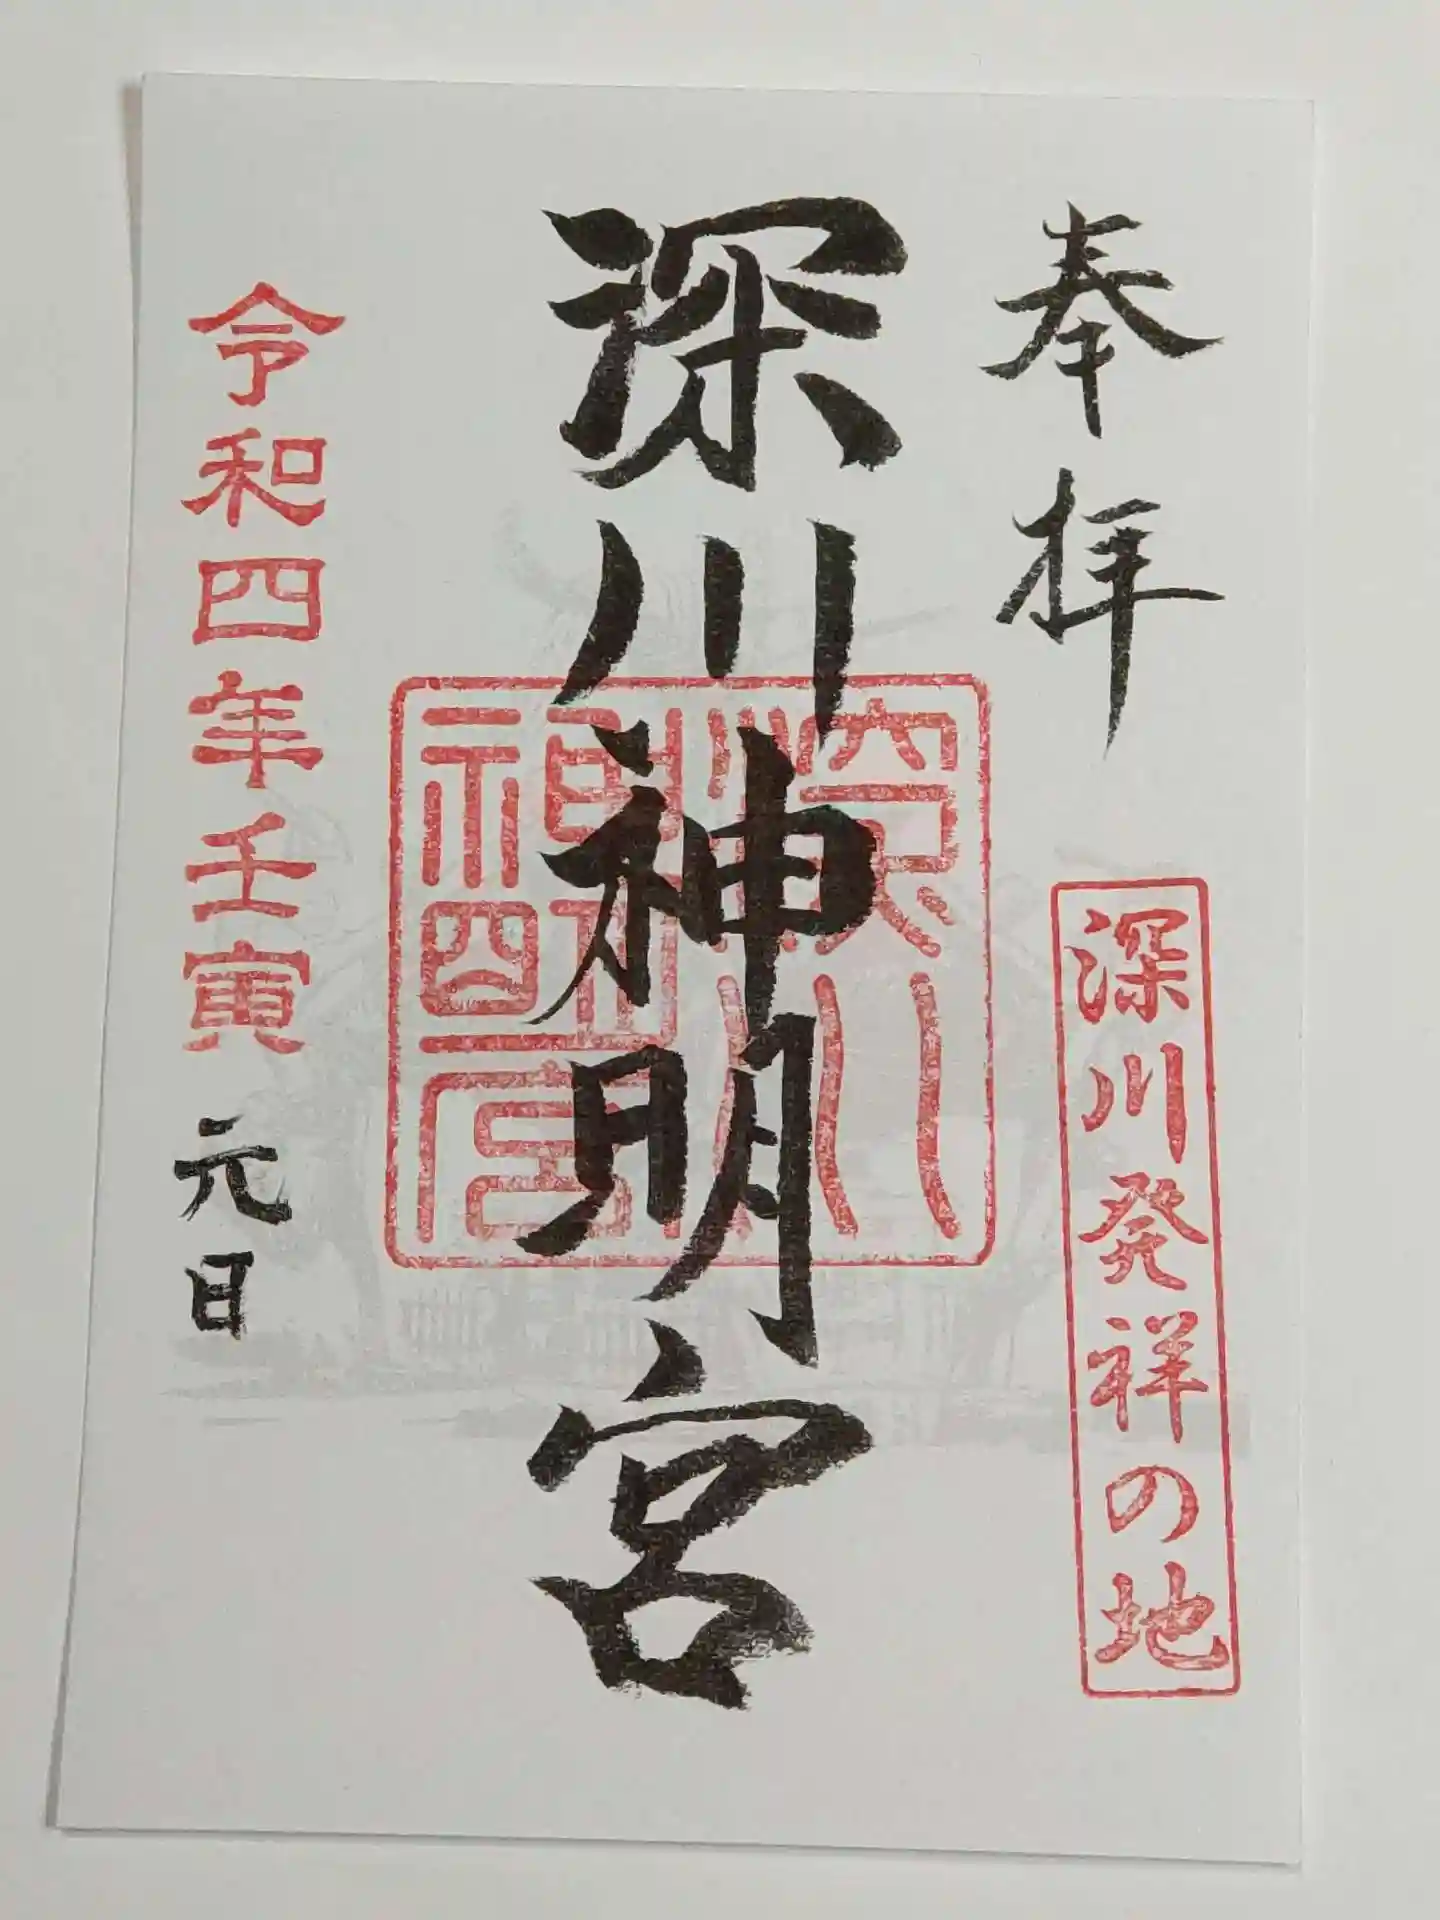 奉拝
深川発祥の地
深川神明宮
深川神明宮
令和四年壬寅 元日